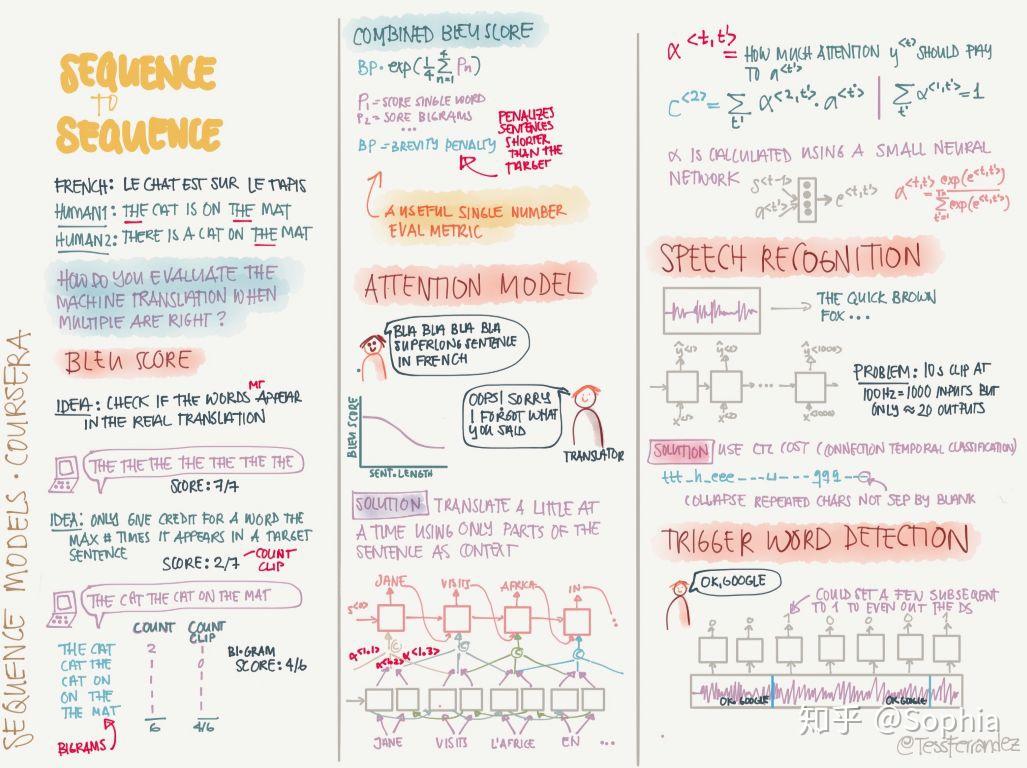 SEQUENCE MODELS · COURSERA
SEQUENCE
TO
SEQUENCE
FRENCH: LE CHAT EST SUR LE TAPIS
HUMAN1: THE CAT IS ON THE MAT
HUMAN2: THERE IS A CAT ON THE MAT
HOW DO YOU EVALUATE THE
MACHINE TRANSLATION WHEN
MULTIPLE ARE RIGHT?
BLEU SCORE
IDEA: CHECK IF THE WORDS MT APPEAR
IN THE REAL TRANSLATION
THE THE THE THE THE THE THE
SCORE: 7/7
IDEA: ONLY GIVE CREDIT FOR A WORD THE
MAX # TIMES IT APPEARS IN A TARGET
SENTENCE
SCORE: 2/7
COUNT
CLIP
THE CAT THE CAT ON THE MAT
COUNT COUNT
CLIP
THE CAT 2 1
CAT THE 1 0
CAT ON 1 1
ON THE 1 1
THE MAT 1 1
6 4/6
BIGRAM
SCORE: 4/6
BIGRAMS
COMBINED BLEU SCORE
BP · exp(1/4 ∑ n=1 4 Pn)
P1 = SCORE SINGLE WORD
P2 = SORE BIGRAMS
...
BP = BREVITY PENALTY
PENALIZES
SENTENCES
SHORTER
THAN THE
TARGET
A USEFUL SINGLE NUMBER
EVAL METRIC
ATTENTION MODEL
BLA BLA BLA BLA
SUPERLONG SENTENCE
IN FRENCH
OOPS! SORRY
I FORGOT WHAT
YOU SAID
TRANSLATOR
BLEU SCORE
SENT. LENGTH
SOLUTION TRANSLATE A LITTLE AT
A TIME USING ONLY PARTS OF THE
SENTENCE AS CONTEXT
JANE VISITS AFRICA IN ...
s<0>
C C C C
α<1,1> α<1,2> α<1,3>
JANE VISITS L'AFRICE EN ...
α<t,t'> = HOW MUCH ATTENTION y<t> SHOULD PAY
TO a<t'>
C<2> = ∑t' α<2,t'> · a<t'> | ∑t' α<1,t'> = 1
α IS CALCULATED USING A SMALL NEURAL
NETWORK
s<t-1>
a<t'>
e<t,t'>
a<t,t'> = exp(e<t,t'>) / ∑t'=1 Tx exp(e<t,t'>)
SPEECH RECOGNITION
THE QUICK BROWN
FOX ...
ŷ<1> ŷ<2> ŷ<1000>
...
x<1> x<2> x<1000>
PROBLEM: 10s CLIP AT
100Hz = 1000 INPUTS BUT
ONLY ≈ 20 OUTPUTS
SOLUTION USE CTC COST (CONNECTION TEMPORAL CLASSIFICATION)
ttt_h_eee---⊔---qqq--
COLLAPSE REPEATED CHARS NOT SEP BY BLANK
TRIGGER WORD DETECTION
OK, GOOGLE
COULD SET A FEW SUBSEQENT
TO 1 TO EVEN OUT THE DS
0 0 1 0 0 0 1
OK GOOGLE OK GOOGLE
知乎 @Sophia
@TessFerrandez